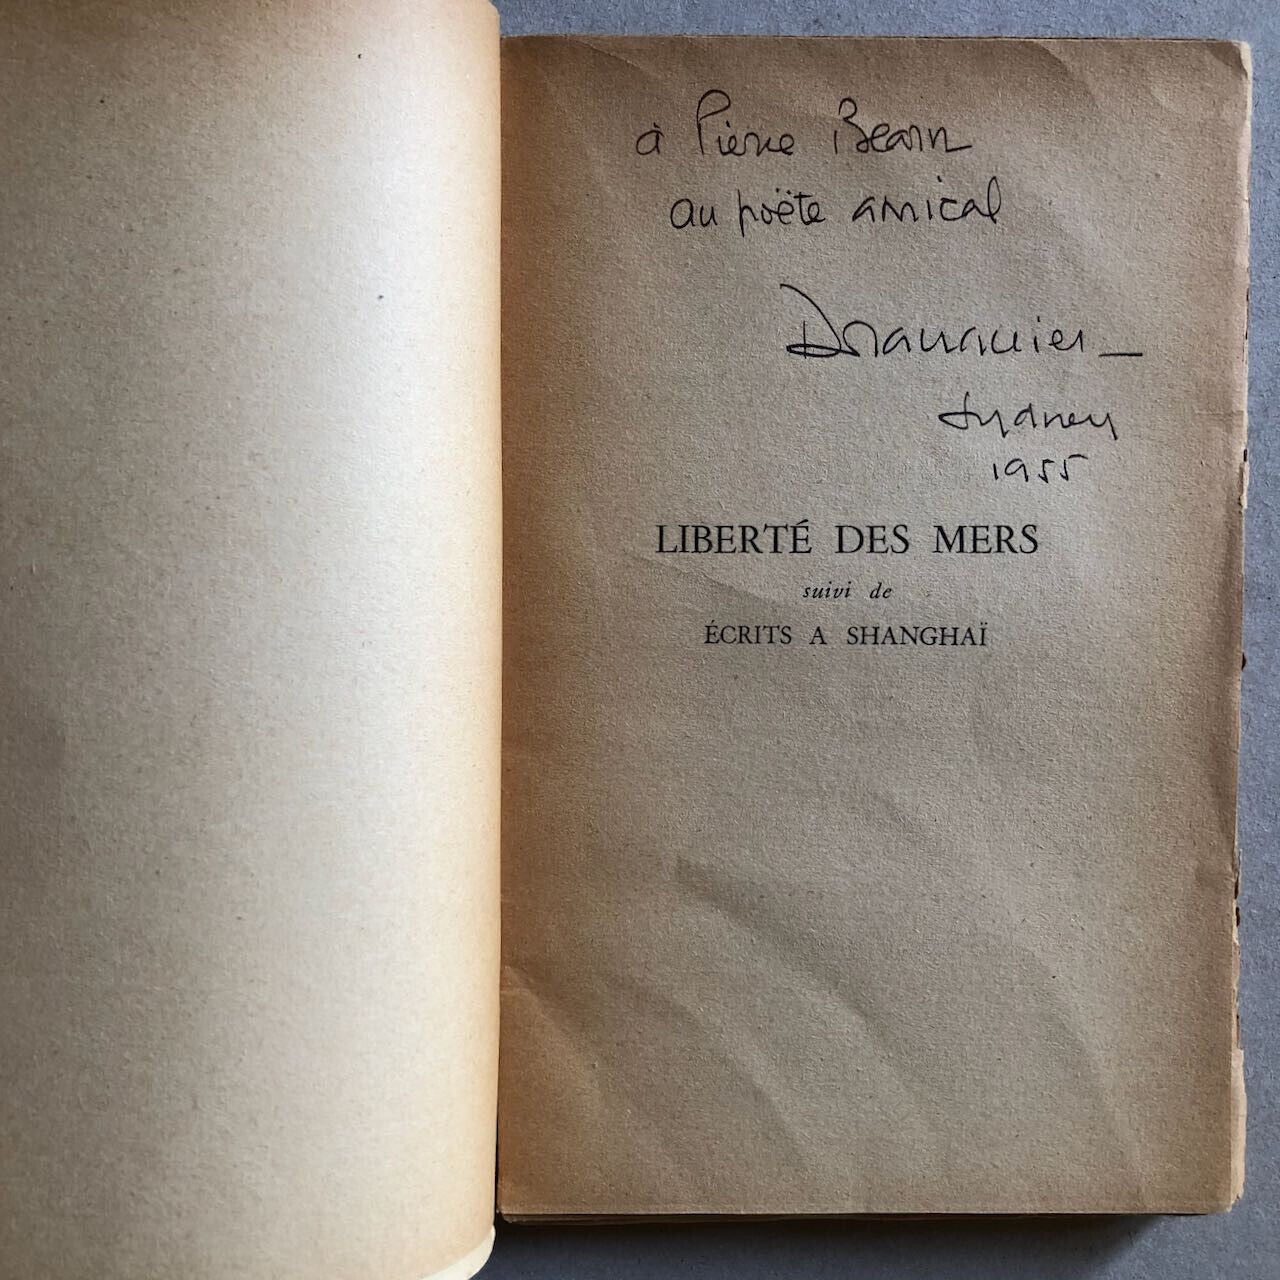 à Pierre Bearn
au poëte amical
LBrauquier
Sydney
1955
LIBERTÉ DES MERS
suivi de
ÉCRITS A SHANGHAÏ